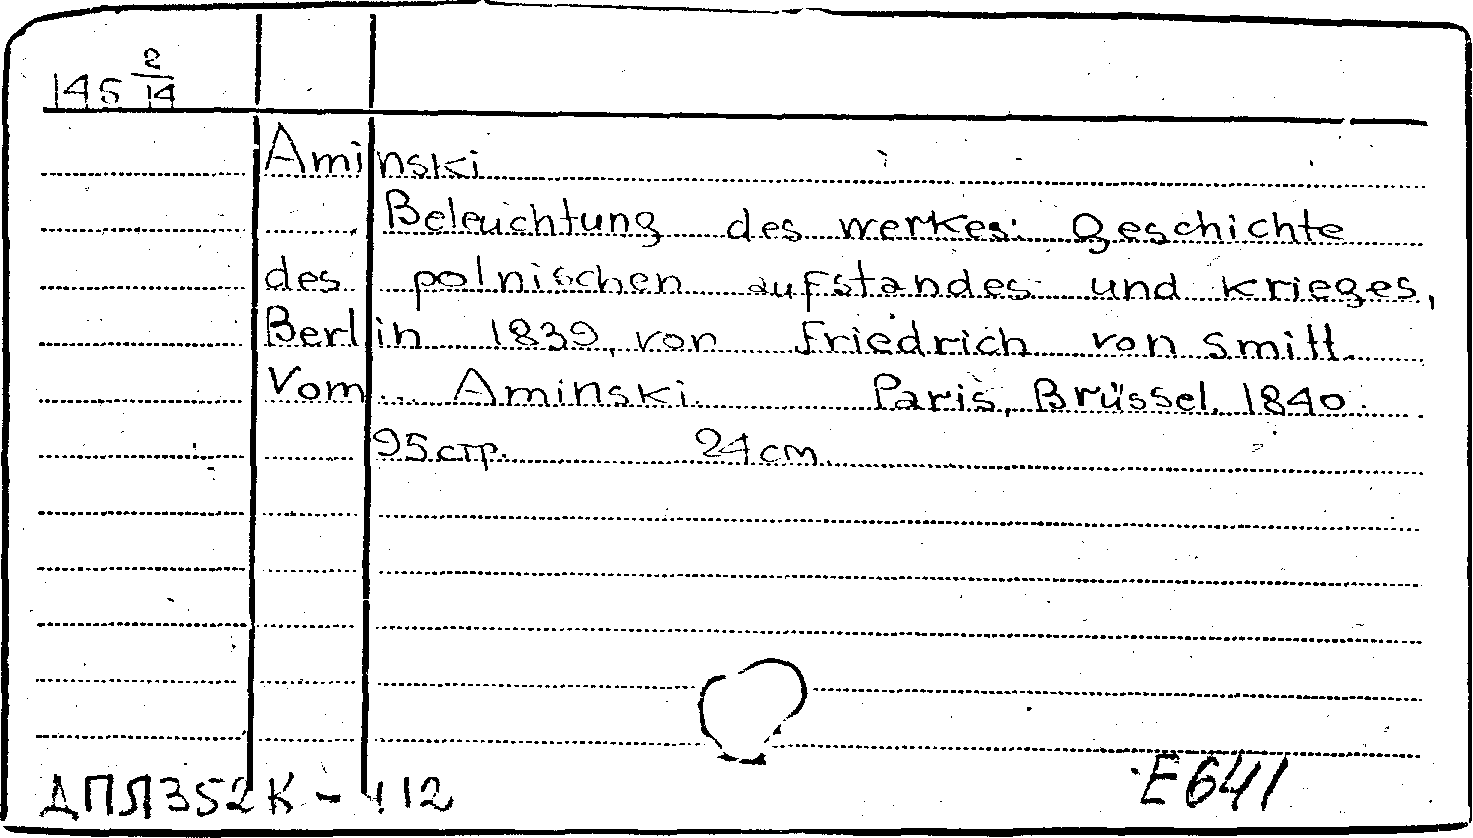 145 2/14
Aminski
Beleuchtung des werkes: Geschichte
des polnischen aufstandes und krieges,
Berlin 1839, von Friedrich von Smitt.
Vom... Aminski. Paris, Brüssel, 1840.
95 стр. 24 cm.
ДПЛ352К-112
E641